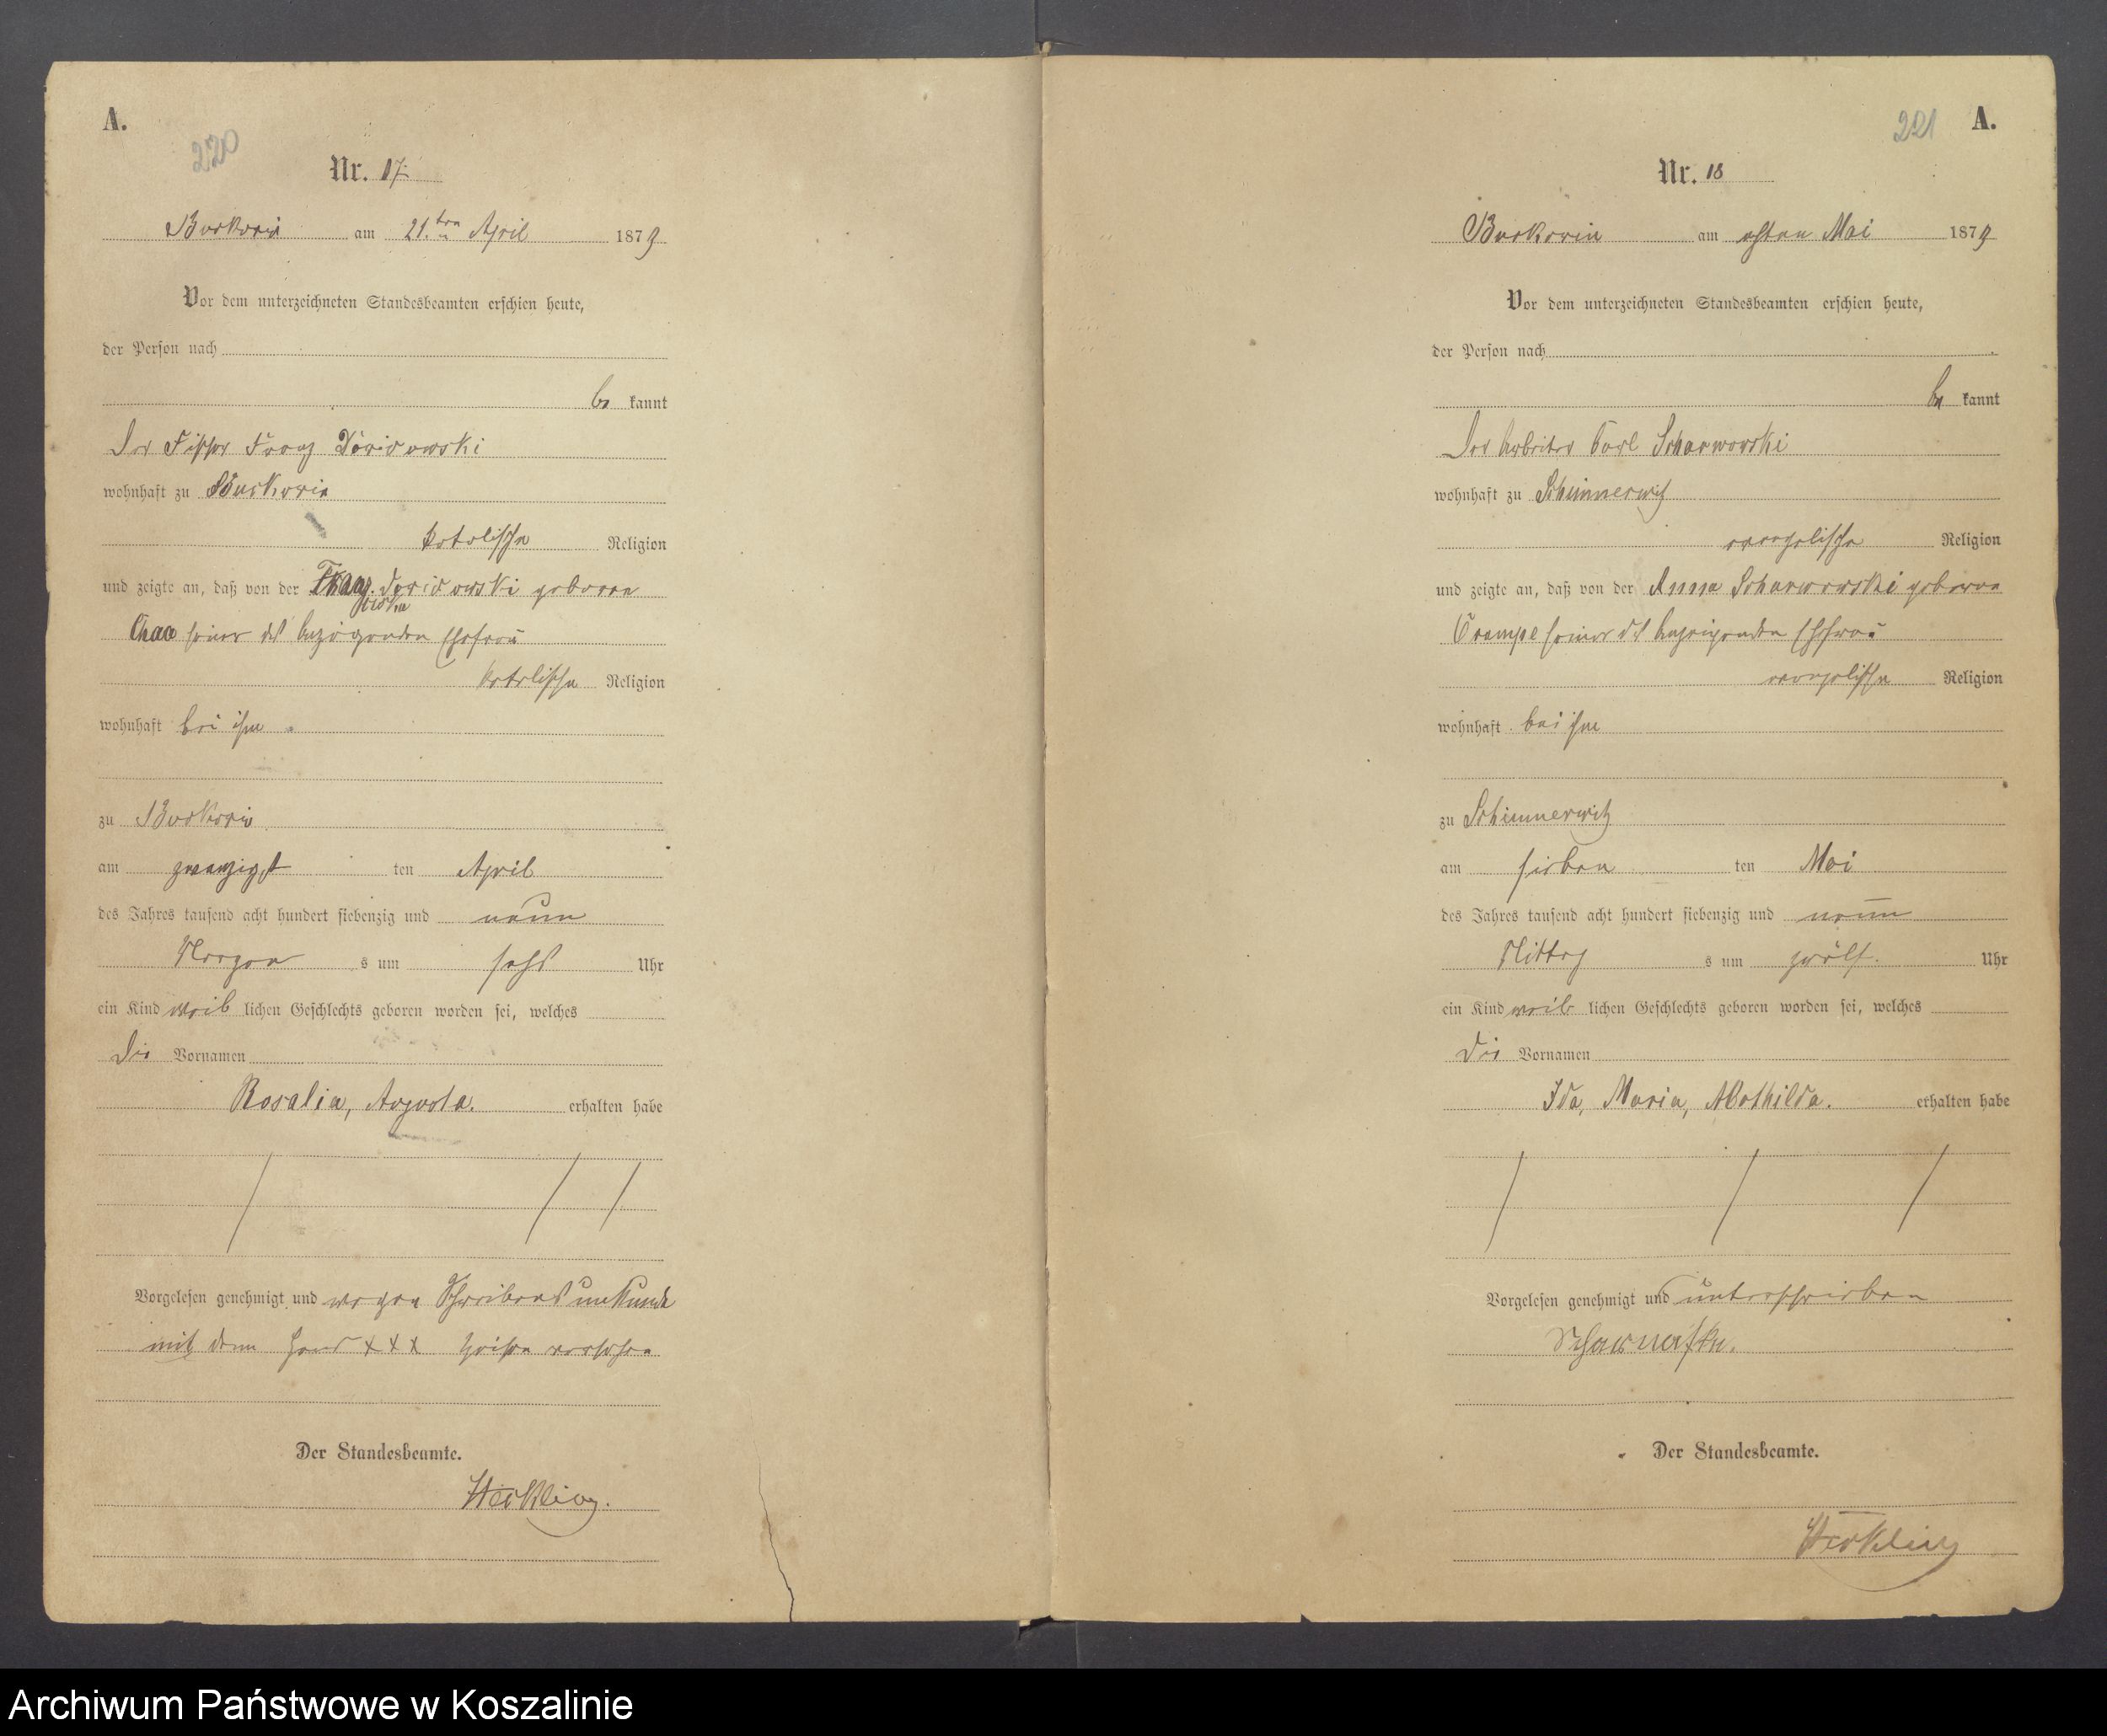 A.
220
Nr. 17
Buckowin am 21.ten April 1879
Vor dem unterzeichneten Standesbeamten erschien heute,
der Person nach
be kannt
Der Franz
wohnhaft zu Buckowin
katolischer Religion
und zeigte an, daß von der geborene
seiner des Ehefrau
katolischer Religion
wohnhaft bei ihm
zu Buckowin
am zwanzigst ten April
des Jahres tausend acht hundert siebenzig und neun
Morgen s um sechs Uhr
ein Kind weib lichen Geschlechts geboren worden sei, welches
die Vornamen
Rosalia, Augusta. erhalten habe
Vorgelesen genehmigt und wegen Schreibensunkunde
mit dem Hand xxx Zeichen versehen
Der Standesbeamte.
221 A.
Nr. 18
Buckowin am 8ten Mai 1879
Vor dem unterzeichneten Standesbeamten erschien heute,
der Person nach
be kannt
Der Arbeiter Carl Scharnowski
wohnhaft zu Schimmerwitz
evangelischer Religion
und zeigte an, daß von der Anna Scharnowski geborene
seiner des Ehefrau
evangelischer Religion
wohnhaft bei ihm
zu Schimmerwitz
am sieben ten Mai
des Jahres tausend acht hundert siebenzig und neun
Mittag s um zwölf Uhr
ein Kind weib lichen Geschlechts geboren worden sei, welches
die Vornamen
Ida, Maria, Mathilda. erhalten habe
Vorgelesen genehmigt und unterschrieben
Der Standesbeamte.
Archiwum Państwowe w Koszalinie